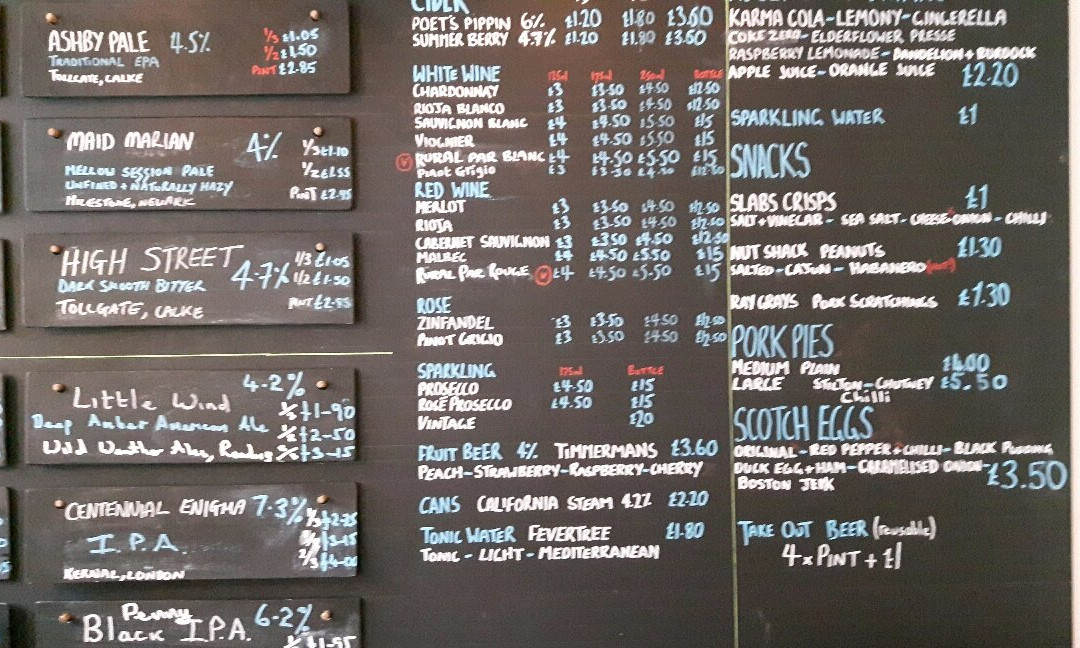 ASHBY PALE 4.5% 1/3 £1.05
TRADITIONAL EPA 1/2 £1.50
TOLLGATE, CALKE PINT £2.85
MAID MARIAN 4% 1/3 £1.10
MELLOW SESSION PALE 1/2 £1.55
UNFINED + NATURALLY HAZY
MILESTONE, NEWARK PINT £2.95
HIGH STREET 4.7% 1/3 £1.05
DARK SMOOTH BITTER 1/2 £1.50
TOLLGATE, CALKE PINT £2.85
4.2%
Little Wind 1/3 £1-90
Deep Amber American Ale 1/2 £2-50
Wild Weather Ales, Reading 2/3 £3-15
CENTENNIAL ENIGMA 7.3% 1/3 £2-25
I.P.A. 1/2 £3-15
KERNAL, LONDON 2/3 £4-00
Penny 6-2%
Black I.P.A. £1-95
CIDER
POET'S PIPPIN 6% £1.20 £1.80 £3.60
SUMMER BERRY 4.7% £1.20 £1.80 £3.60
WHITE WINE 125ml 175ml 250ml BOTTLE
CHARDONNAY £3 £3.50 £4.50 £12.50
RIOJA BLANCO £3 £3.50 £4.50 £12.50
SAUVIGNON BLANC £4 £4.50 £5.50 £15
VIOGNIER £4 £4.50 £5.50 £15
V RURAL PAR BLANC £4 £4.50 £5.50 £15
PINOT GRIGIO £3 £3.50 £4.50 £12.50
RED WINE
MERLOT £3 £3.50 £4.50 £12.50
RIOJA £3 £3.50 £4.50 £12.50
CABERNET SAUVIGNON £3 £3.50 £4.50 £12.50
MALBEC £4 £4.50 £5.50 £15
RURAL PAR ROUGE V £4 £4.50 £5.50 £15
ROSE
ZINFANDEL £3 £3.50 £4.50 £12.50
PINOT GRIGIO £3 £3.50 £4.50 £12.50
SPARKLING 175ml BOTTLE
PROSECCO £4.50 £15
ROSE PROSECCO £4.50 £15
VINTAGE £20
FRUIT BEER 4% TIMMERMANS £3.60
PEACH-STRAWBERRY-RASPBERRY-CHERRY
CANS CALIFORNIA STEAM 4.2% £2.20
TONIC WATER FEVERTREE £1.80
TONIC - LIGHT - MEDITERRANEAN
KARMA COLA-LEMONY-GINGERELLA
COKE ZERO-ELDERFLOWER PRESSE
RASPBERRY LEMONADE-DANDELION + BURDOCK
APPLE JUICE-ORANGE JUICE £2.20
SPARKLING WATER £1
SNACKS
SLABS CRISPS £1
SALT+VINEGAR - SEA SALT-CHEESE+ONION-CHILLI
NUT SHACK PEANUTS £1.30
SALTED-CAJUN-HABANERO (HOT)
RAY GRAYS PORK SCRATCHINGS £1.30
PORK PIES
MEDIUM PLAIN £4.00
LARGE STILTON-CHUTNEY £5.50
Chilli
SCOTCH EGGS
ORIGINAL-RED PEPPER+CHILLI-BLACK PUDDING
DUCK EGG+HAM-CARAMELISED ONION- £3.50
BOSTON JERK
TAKE OUT BEER (reusable)
4 x PINT + £1